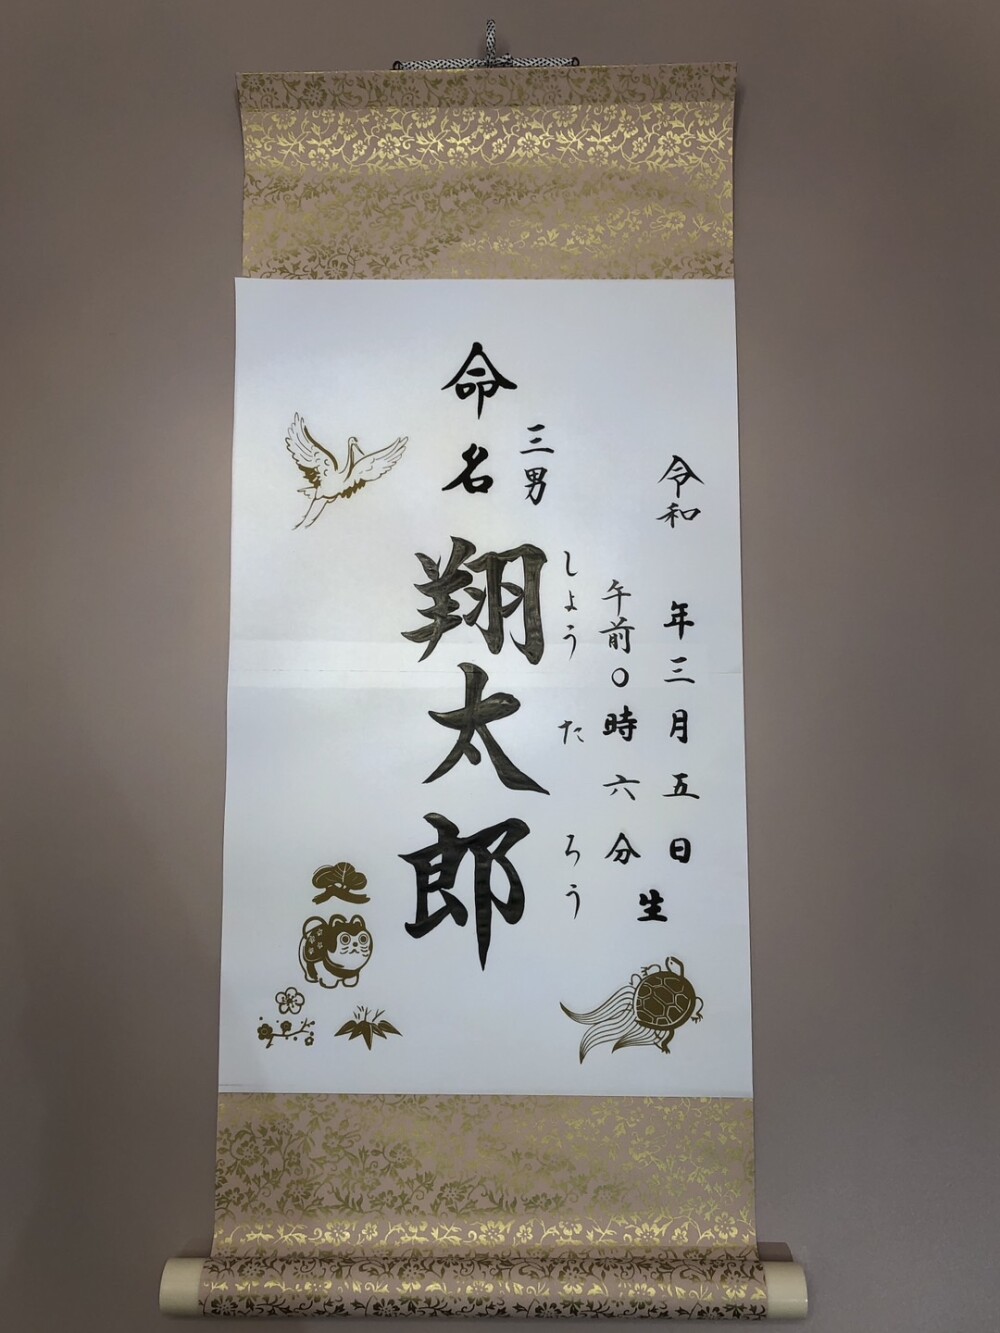 令和 年三月五日
午前〇時六分
生
しょう た ろう
三男
命名 翔太郎